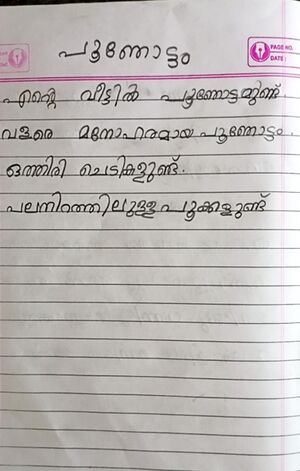 പൂന്തോട്ടം
PAGE NO.
DATE:
എന്റെ വീട്ടിൽ പൂന്തോട്ടമുണ്ട്.
വളരെ മനോഹരമായ പൂന്തോട്ടം.
ഒത്തിരി ചെടികളുണ്ട്.
പലനിറത്തിലുള്ള പൂക്കളുണ്ട്